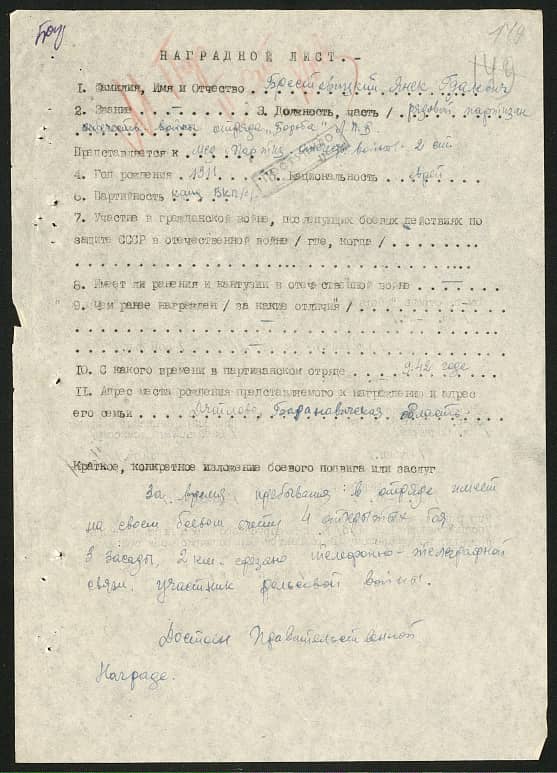 149
149
НАГРАДНОЙ ЛИСТ.-
1. Фамилия, Имя и Отчество . Брестовицкий, Янек
2. Звание . . — . . 3. Должность, часть / . . рядовой партизан
отряда "Борьба"
Представляется к мед. Партиз. отечеств. войны 2 ст
4. Год рождения . 1911 . . Национальность . . еврей
6. Партийность . канд ВКП/б/
7. Участие в гражданской войне, последующих боевых действиях по
защите СССР в отечественной войне / где, когда / . . . . . . . .
8. Имеет ли ранения и кантузии в отечественной войне . . — . .
9. Чем ранее награжден / за какие отличия / . . . . . . . . .
10. С какого времени в партизанском отряде . . . 9.42 года
11. Адрес места рождения представляемого к награждению и адрес
его семьи . . . . . Барановичская область
Краткое, конкретное изложение боевого подвига или заслуг
За время пребывания в отряде имеет
на своем боевом счету 4 открытых боя
3 засады, 2 км. срезано телефонно-телеграфной
связи. участник рельсовой войны.
Достоин Правительственной
Награде.